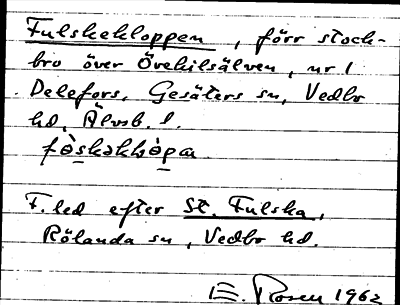 Fulskekloppen, förr stock-
bro över Örekilsälven, nr 1
Delefors, Gesäters sn, Vedbo
hd, Älvsb. l.
fə̀skəkhɔ̀pa
F. led efter St. Fulska,
Rölanda sn, Vedbo hd.
E. Rosen 1962